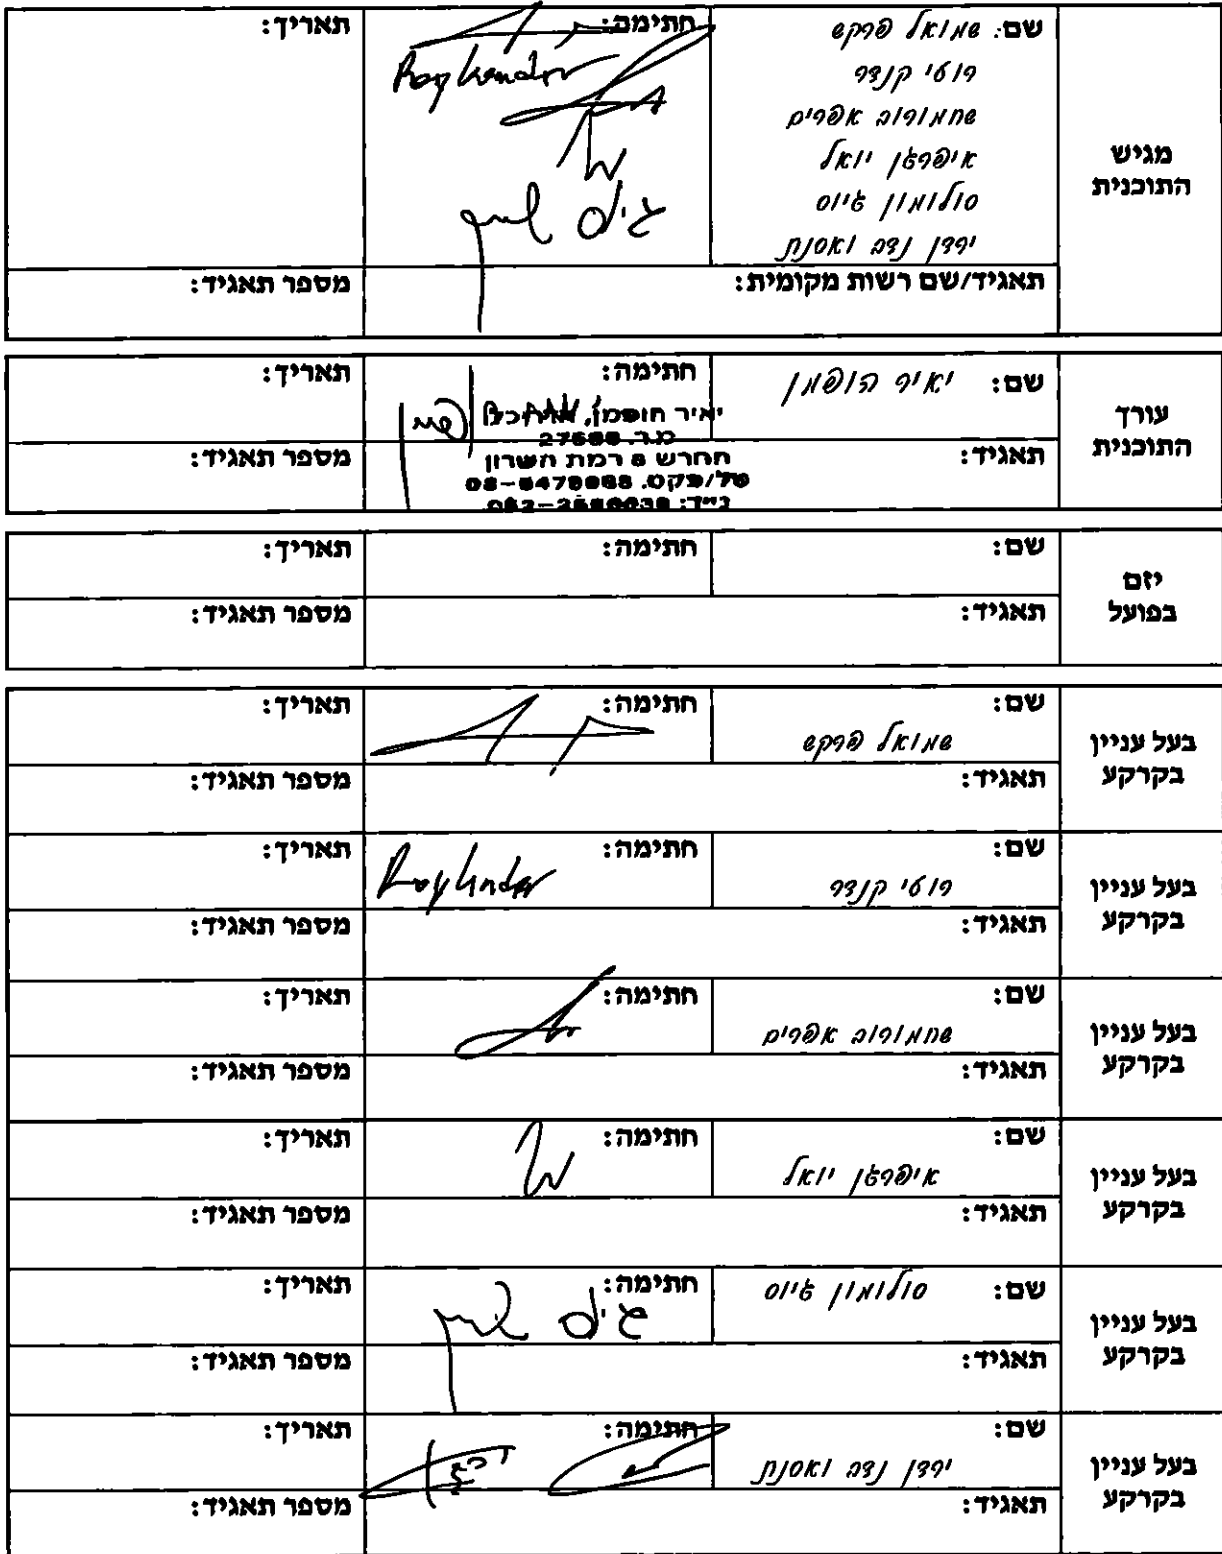 מגיש התוכנית
שם: שמואל פרקש
רועי קנדר
שחמורוב אפרים
איפרגן יואל
סולומון גיוס
ירדן נדב ואסנת
חתימה:
Roy Kender
תאריך:
תאגיד/שם רשות מקומית:
מספר תאגיד:
עורך התוכנית
שם: יאיר הופמן
חתימה:
יאיר הופמן,
מ.ר. 27588
החרש 8 רמת השרון
טל/פקס.
נייד:
תאריך:
תאגיד:
מספר תאגיד:
יזם בפועל
שם:
חתימה:
תאריך:
תאגיד:
מספר תאגיד:
בעל עניין בקרקע
שם:
שמואל פרקש
חתימה:
תאריך:
תאגיד:
מספר תאגיד:
בעל עניין בקרקע
שם:
רועי קנדר
חתימה:
Roy Kender
תאריך:
תאגיד:
מספר תאגיד:
בעל עניין בקרקע
שם:
שחמורוב אפרים
חתימה:
תאריך:
תאגיד:
מספר תאגיד:
בעל עניין בקרקע
שם:
איפרגן יואל
חתימה:
תאריך:
תאגיד:
מספר תאגיד:
בעל עניין בקרקע
שם: סולומון גיוס
חתימה:
תאריך:
תאגיד:
מספר תאגיד:
בעל עניין בקרקע
שם:
ירדן נדב ואסנת
חתימה:
תאריך:
תאגיד:
מספר תאגיד: